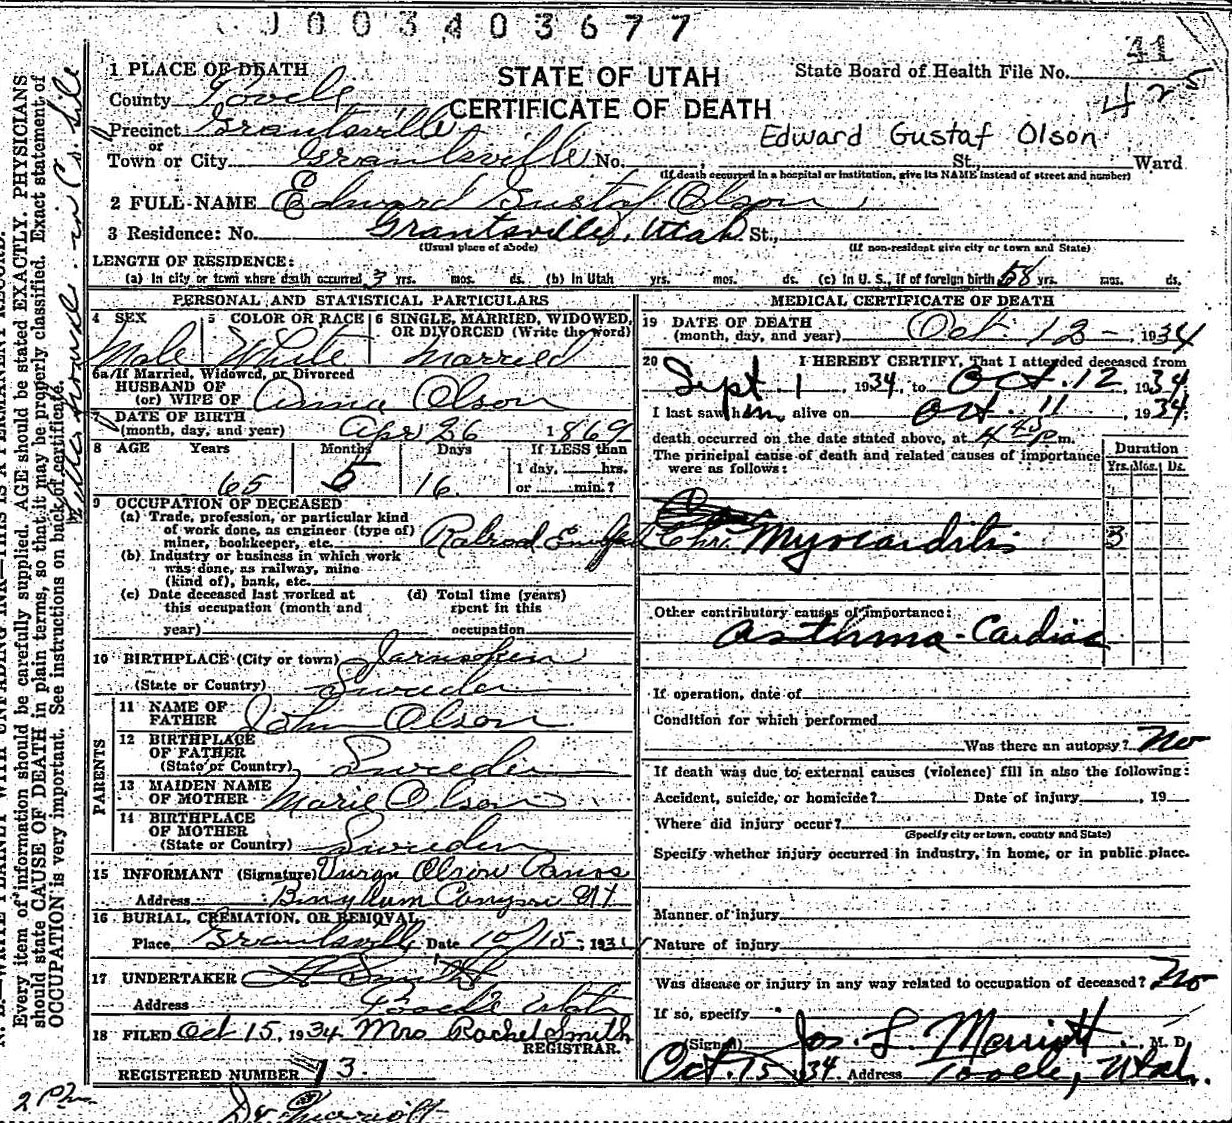 0003403677
41
1 PLACE OF DEATH
STATE OF UTAH
CERTIFICATE OF DEATH
State Board of Health File No.
42
County Tooele
Precinct Grantsville
or
Edward Gustaf Olson
Town or City Grantsville No. St. Ward
(If death occurred in a hospital or institution, give its NAME instead of street and number)
2 FULL NAME Edward Gustaf Olson
3 Residence: No. Grantsville, Utah St.,
(Usual place of abode) (If non-resident give city or town and State)
LENGTH OF RESIDENCE:
(a) In city or town where death occurred 3 yrs. mos. ds. (b) In Utah yrs. mos. ds. (c) In U. S., if of foreign birth 58 yrs. mos. ds.
PERSONAL AND STATISTICAL PARTICULARS
4 SEX 5 COLOR OR RACE 6 SINGLE, MARRIED, WIDOWED, OR DIVORCED (Write the word)
Male White Married
6a If Married, Widowed, or Divorced
HUSBAND OF
(or) WIFE OF Anna Olson
7 DATE OF BIRTH
(month, day, and year) Apr 26 1869
8 AGE Years Months Days If LESS than
1 day, hrs.
65 5 16 or min.?
9 OCCUPATION OF DECEASED
(a) Trade, profession, or particular kind
of work done, as engineer (type of)
miner, bookkeeper, etc. Railroad
(b) Industry or business in which work
was done, as railway, mine
(kind of), bank, etc.
(c) Date deceased last worked at
this occupation (month and
year)
(d) Total time (years)
spent in this
occupation
10 BIRTHPLACE (City or town)
(State or Country) Sweden
PARENTS
11 NAME OF
FATHER John Olson
12 BIRTHPLACE
OF FATHER
(State or Country) Sweden
13 MAIDEN NAME
OF MOTHER Marie Olson
14 BIRTHPLACE
OF MOTHER
(State or Country) Sweden
15 INFORMANT (Signature) Olson
Address Bingham Canyon Ut
16 BURIAL, CREMATION, OR REMOVAL
Place Grantsville Date 10/15, 193
17 UNDERTAKER Smith
Address Tooele Utah
18 FILED Oct 15, 1934 Mrs Rachel Smith
REGISTRAR.
REGISTERED NUMBER 13.
MEDICAL CERTIFICATE OF DEATH
19 DATE OF DEATH
(month, day, and year) Oct. 12 -, 1934
20 I HEREBY CERTIFY, That I attended deceased from
Sept 1, 1934, to Oct. 12, 1934
I last saw him alive on Oct. 11, 1934.
death occurred on the date stated above, at 4 45 p m.
The principal cause of death and related causes of importance
were as follows:
Duration
Yrs. Mos. Ds.
Chr. Myocarditis 3
Other contributory causes of importance:
Asthma - Cardiac
If operation, date of
Condition for which performed
Was there an autopsy? No
If death was due to external causes (violence) fill in also the following:
Accident, suicide, or homicide? Date of injury , 19
Where did injury occur?
(Specify city or town, county and State)
Specify whether injury occurred in industry, in home, or in public place.
Manner of injury
Nature of injury
Was disease or injury in any way related to occupation of deceased? No
If so, specify
(Signed) Jos. L. Merriott, M. D.
Oct. 15 1934 Address Tooele, Utah.
Dr Merriott
Every item of information should be carefully supplied. AGE should be stated EXACTLY. PHYSICIANS
should state CAUSE OF DEATH in plain terms, so that it may be properly classified. Exact statement of
OCCUPATION is very important. See instructions on back of certificate.